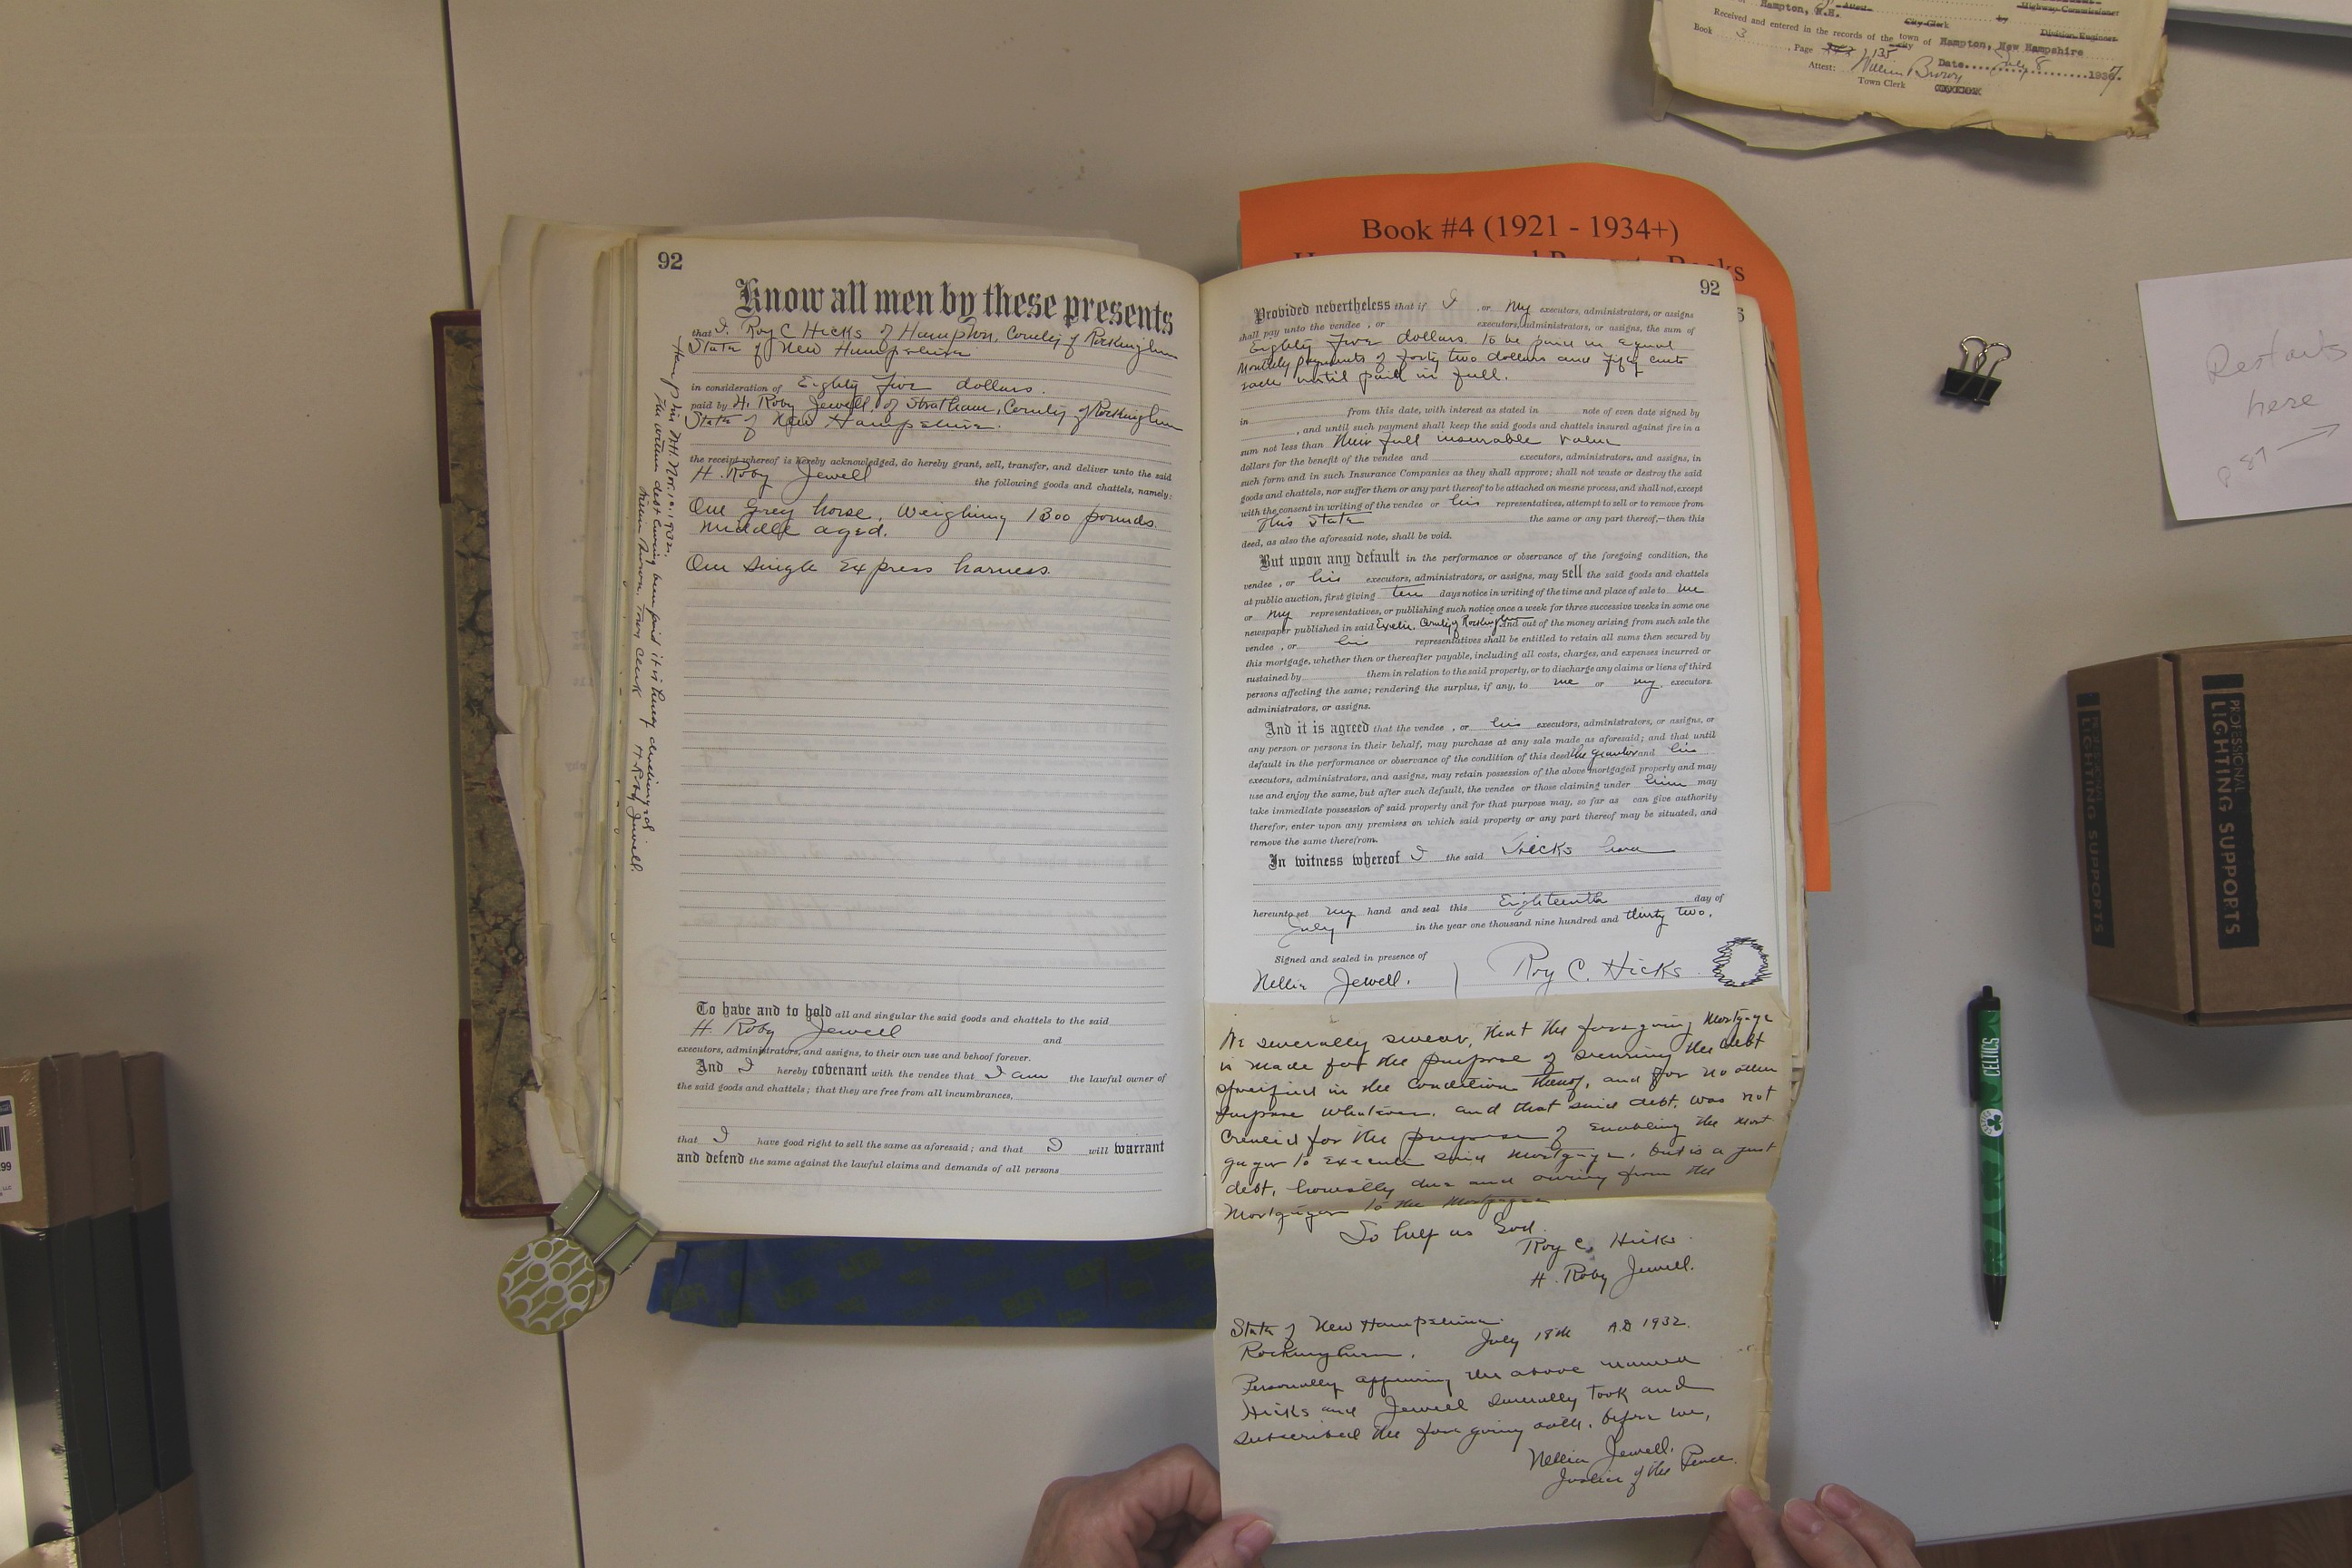 Hampton, N.H. Attest by Highway Commissioner
City Clerk Division Engineer
Received and entered in the records of the town of Hampton, New Hampshire
city
Book 3, Page 135 Date July 8 1937.
Attest: William Brown
Town Clerk
Book #4 (1921 - 1934+)
92
Know all men by these presents
that I, Roy C Hicks of Hampton, County of Rockingham
State of New Hampshire
in consideration of Eighty Five dollars.
paid by H. Roby Jewell, of Stratham, County of Rockingham
State of New Hampshire.
the receipt whereof is hereby acknowledged, do hereby grant, sell, transfer, and deliver unto the said
H. Roby Jewell the following goods and chattels, namely:
One Grey horse, Weighing 1300 pounds.
Middle aged.
One Single Express harness.
To have and to hold all and singular the said goods and chattels to the said
H. Roby Jewell and
executors, administrators, and assigns, to their own use and behoof forever.
And I hereby covenant with the vendee that I am the lawful owner of
the said goods and chattels; that they are free from all incumbrances,
that I have good right to sell the same as aforesaid; and that I will warrant
and defend the same against the lawful claims and demands of all persons
Hampton NH. Nov. 10, 1932.
The within debt having been paid it is hereby discharged
William Brown. Town Clerk H. Roby Jewell.
92
Provided nevertheless that if I, or my executors, administrators, or assigns
shall pay unto the vendee , or executors, administrators, or assigns, the sum of
Eighty Five dollars. To be paid in equal
Monthly payments of forty two dollars and fifty cents
each until paid in full.
from this date, with interest as stated in note of even date signed by
in , and until such payment shall keep the said goods and chattels insured against fire in a
sum not less than their full insurable value
dollars for the benefit of the vendee and executors, administrators, and assigns, in
such form and in such Insurance Companies as they shall approve; shall not waste or destroy the said
goods and chattels, nor suffer them or any part thereof to be attached on mesne process, and shall not, except
with the consent in writing of the vendee or his representatives, attempt to sell or to remove from
This State the same or any part thereof,—then this
deed, as also the aforesaid note, shall be void.
But upon any default in the performance or observance of the foregoing condition, the
vendee , or his executors, administrators, or assigns, may sell the said goods and chattels
at public auction, first giving ten days notice in writing of the time and place of sale to me
or my representatives, or publishing such notice once a week for three successive weeks in some one
newspaper published in said Exeter, County of Rockingham And out of the money arising from such sale the
vendee , or his representatives shall be entitled to retain all sums then secured by
this mortgage, whether then or thereafter payable, including all costs, charges, and expenses incurred or
sustained by them in relation to the said property, or to discharge any claims or liens of third
persons affecting the same; rendering the surplus, if any, to me or my executors
administrators, or assigns.
And it is agreed that the vendee , or his executors, administrators, or assigns, or
any person or persons in their behalf, may purchase at any sale made as aforesaid; and that until
default in the performance or observance of the condition of this deed the grantor and his
executors, administrators, and assigns, may retain possession of the above mortgaged property and may
use and enjoy the same, but after such default, the vendee or those claiming under him may
take immediate possession of said property and for that purpose may, so far as can give authority
therefor, enter upon any premises on which said property or any part thereof may be situated, and
remove the same therefrom.
In witness whereof I the said Hicks have
hereunto set my hand and seal this Eighteenth day of
July in the year one thousand nine hundred and thirty two.
Signed and sealed in presence of
Nellie Jewell. Roy C. Hicks
We severally swear, that the foregoing Mortgage
is made for the purpose of securing the debt
specified in the condition thereof, and for no other
purpose whatever. and that said debt, was not
created for the purpose of enabling the mort
gagor to execute said mortgage. but is a just
debt, honestly due and owing from the
Mortgagor to the Mortgagee
So help us God.
Roy C. Hicks
H. Roby Jewell.
State of New Hampshire.
Rockingham. July 18th A.D 1932.
Personally appearing the above named
Hicks and Jewell severally took and
subscribed the foregoing oath. before me,
Nellie Jewell.
Justice of the Peace.
Restarts
here
p 87 →
PROFESSIONAL
LIGHTING SUPPORTS
LIGHTING SUPPORTS
CELTICS